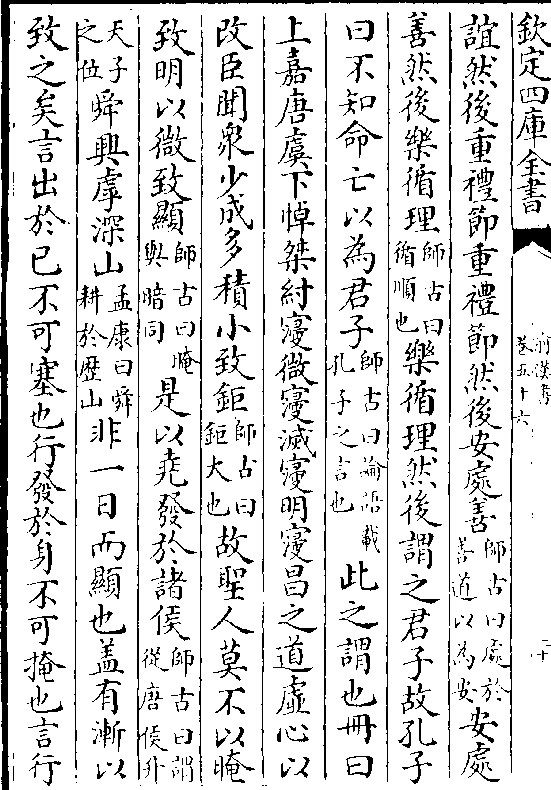 欽定四庫全書
前漢書
卷五十六
二十
誼然後重禮節重禮節然後安處善師古曰處於善道以為安安處
善然後樂循理師古曰循順也樂循理然後謂之君子故孔子
曰不知命亡以為君子師古曰論語載孔子之言也此之謂也冊曰
上嘉唐虞下悼桀紂寖微寖滅寖明寖昌之道虛心以
改臣聞衆少成多積小致鉅師古曰鉅大也故聖人莫不以晻
致明以微致顯師古曰晻與暗同是以堯發於諸侯師古曰謂從唐侯升
天子之位舜興虖深山孟康曰舜耕於歷山非一日而顯也盖有漸以
致之矣言出於已不可塞也行發於身不可掩也言行